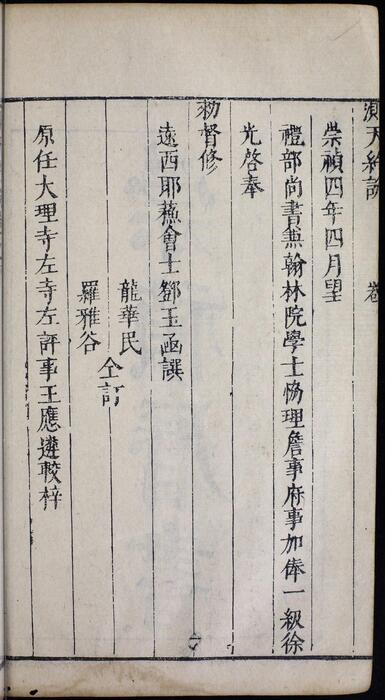 測天約說 卷
崇禎四年四月望
禮部尚書兼翰林院學士協理詹事府事加俸一級徐
光啓奉
勑督修
遠西耶蘓會士鄧玉函譔
龍華民
羅雅谷
仝訂
原任大理寺左寺左評事王應遴較梓
六